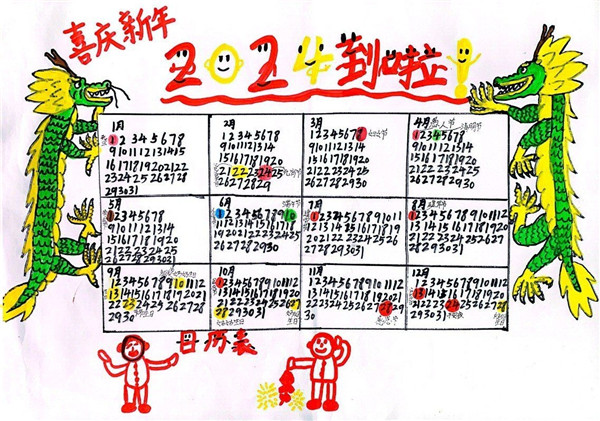 喜庆新年
2024到啦!
1月
1 2 3 4 5 6 7 8
9 10 11 12 13 14 15
16 17 18 19 20 21 22
23 24 25 26 27 28
29 30 31
2月
1 2 3 4 5 6 7 8
9 10 11 12 13 14
15 16 17 18 19 20
21 22 23 24 25
26 27 28 29
3月
1 2 3 4 5 6 7 8 妇女节
9 10 11 12 13 14
15 16 17 18 19 20
21 22 23 24 25
26 27 28 29 30 31
4月 愚人节 清明节
1 2 3 4 5 6 7 8
9 10 11 12 13 14
15 16 17 18 19 20
21 22 23 24 25
26 27 28 29 30
5月
1 2 3 4 5 6 7 8
9 10 11 12 13 14
15 16 17 18 19 20
21 22 23 24 25
26 27 28 29 30 31
6月
1 2 3 4 5 6 7 8 9 10
11 12 13 14 15 16 17 18
19 20 21 22 23 24 25
26 27 28 29 30
7月
1 2 3 4 5 6 7 8 9 10 11
12 13 14 15 16 17 18 19
20 21 22 23 24 25 26
27 28 29 30 31
8月 建军节
1 2 3 4 5 6 7 8 9 10 11 12
13 14 15 16 17 18 19 20
21 22 23 24 25 26 27
28 29 30 31
9月
1 2 3 4 5 6 7 8 9 10 11 12
13 14 15 16 17 18 19 20 21
22 23 24 25 26 27 28
29 30
10月
1 2 3 4 5 6 7 8 9 10 11 12
13 14 15 16 17 18 19 20
21 22 23 24 25 26 27
28 29 30 31
11月
1 2 3 4 5 6 7 8 9 10 11 12
13 14 15 16 17 18 19 20 21
22 23 24 25 26 27 28 29
30
12月
1 2 3 4 5 6 7 8 9 10 11 12
13 14 15 16 17 18 19 20
21 22 23 24 25 26 27 28
29 30 31 平安夜
日历表